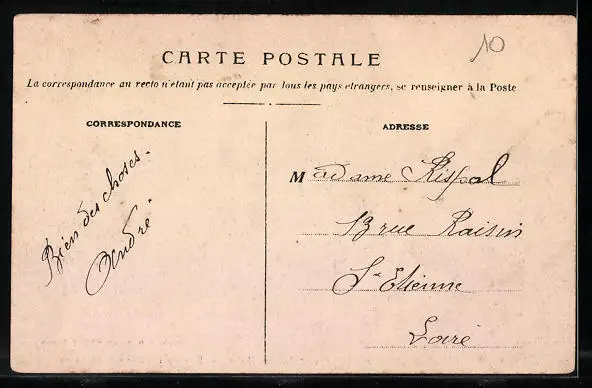 10
CARTE POSTALE
La correspondance au recto n'etant pas acceptée par tous les pays etrangers, se renseigner à la Poste
CORRESPONDANCE
ADRESSE
Bien des choses.
André
Madame Rispal
13 rue Raisin
St Etienne
Loire